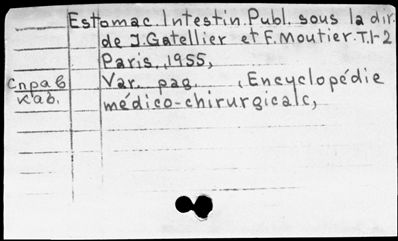 Estomac. Intestin. Publ. sous la dir.
de J. Gatellier et F. Moutier. T. 1-2
Paris, 1955,
Справ Var. pag. , Encyclopédie
каб. médico-chirurgicale,